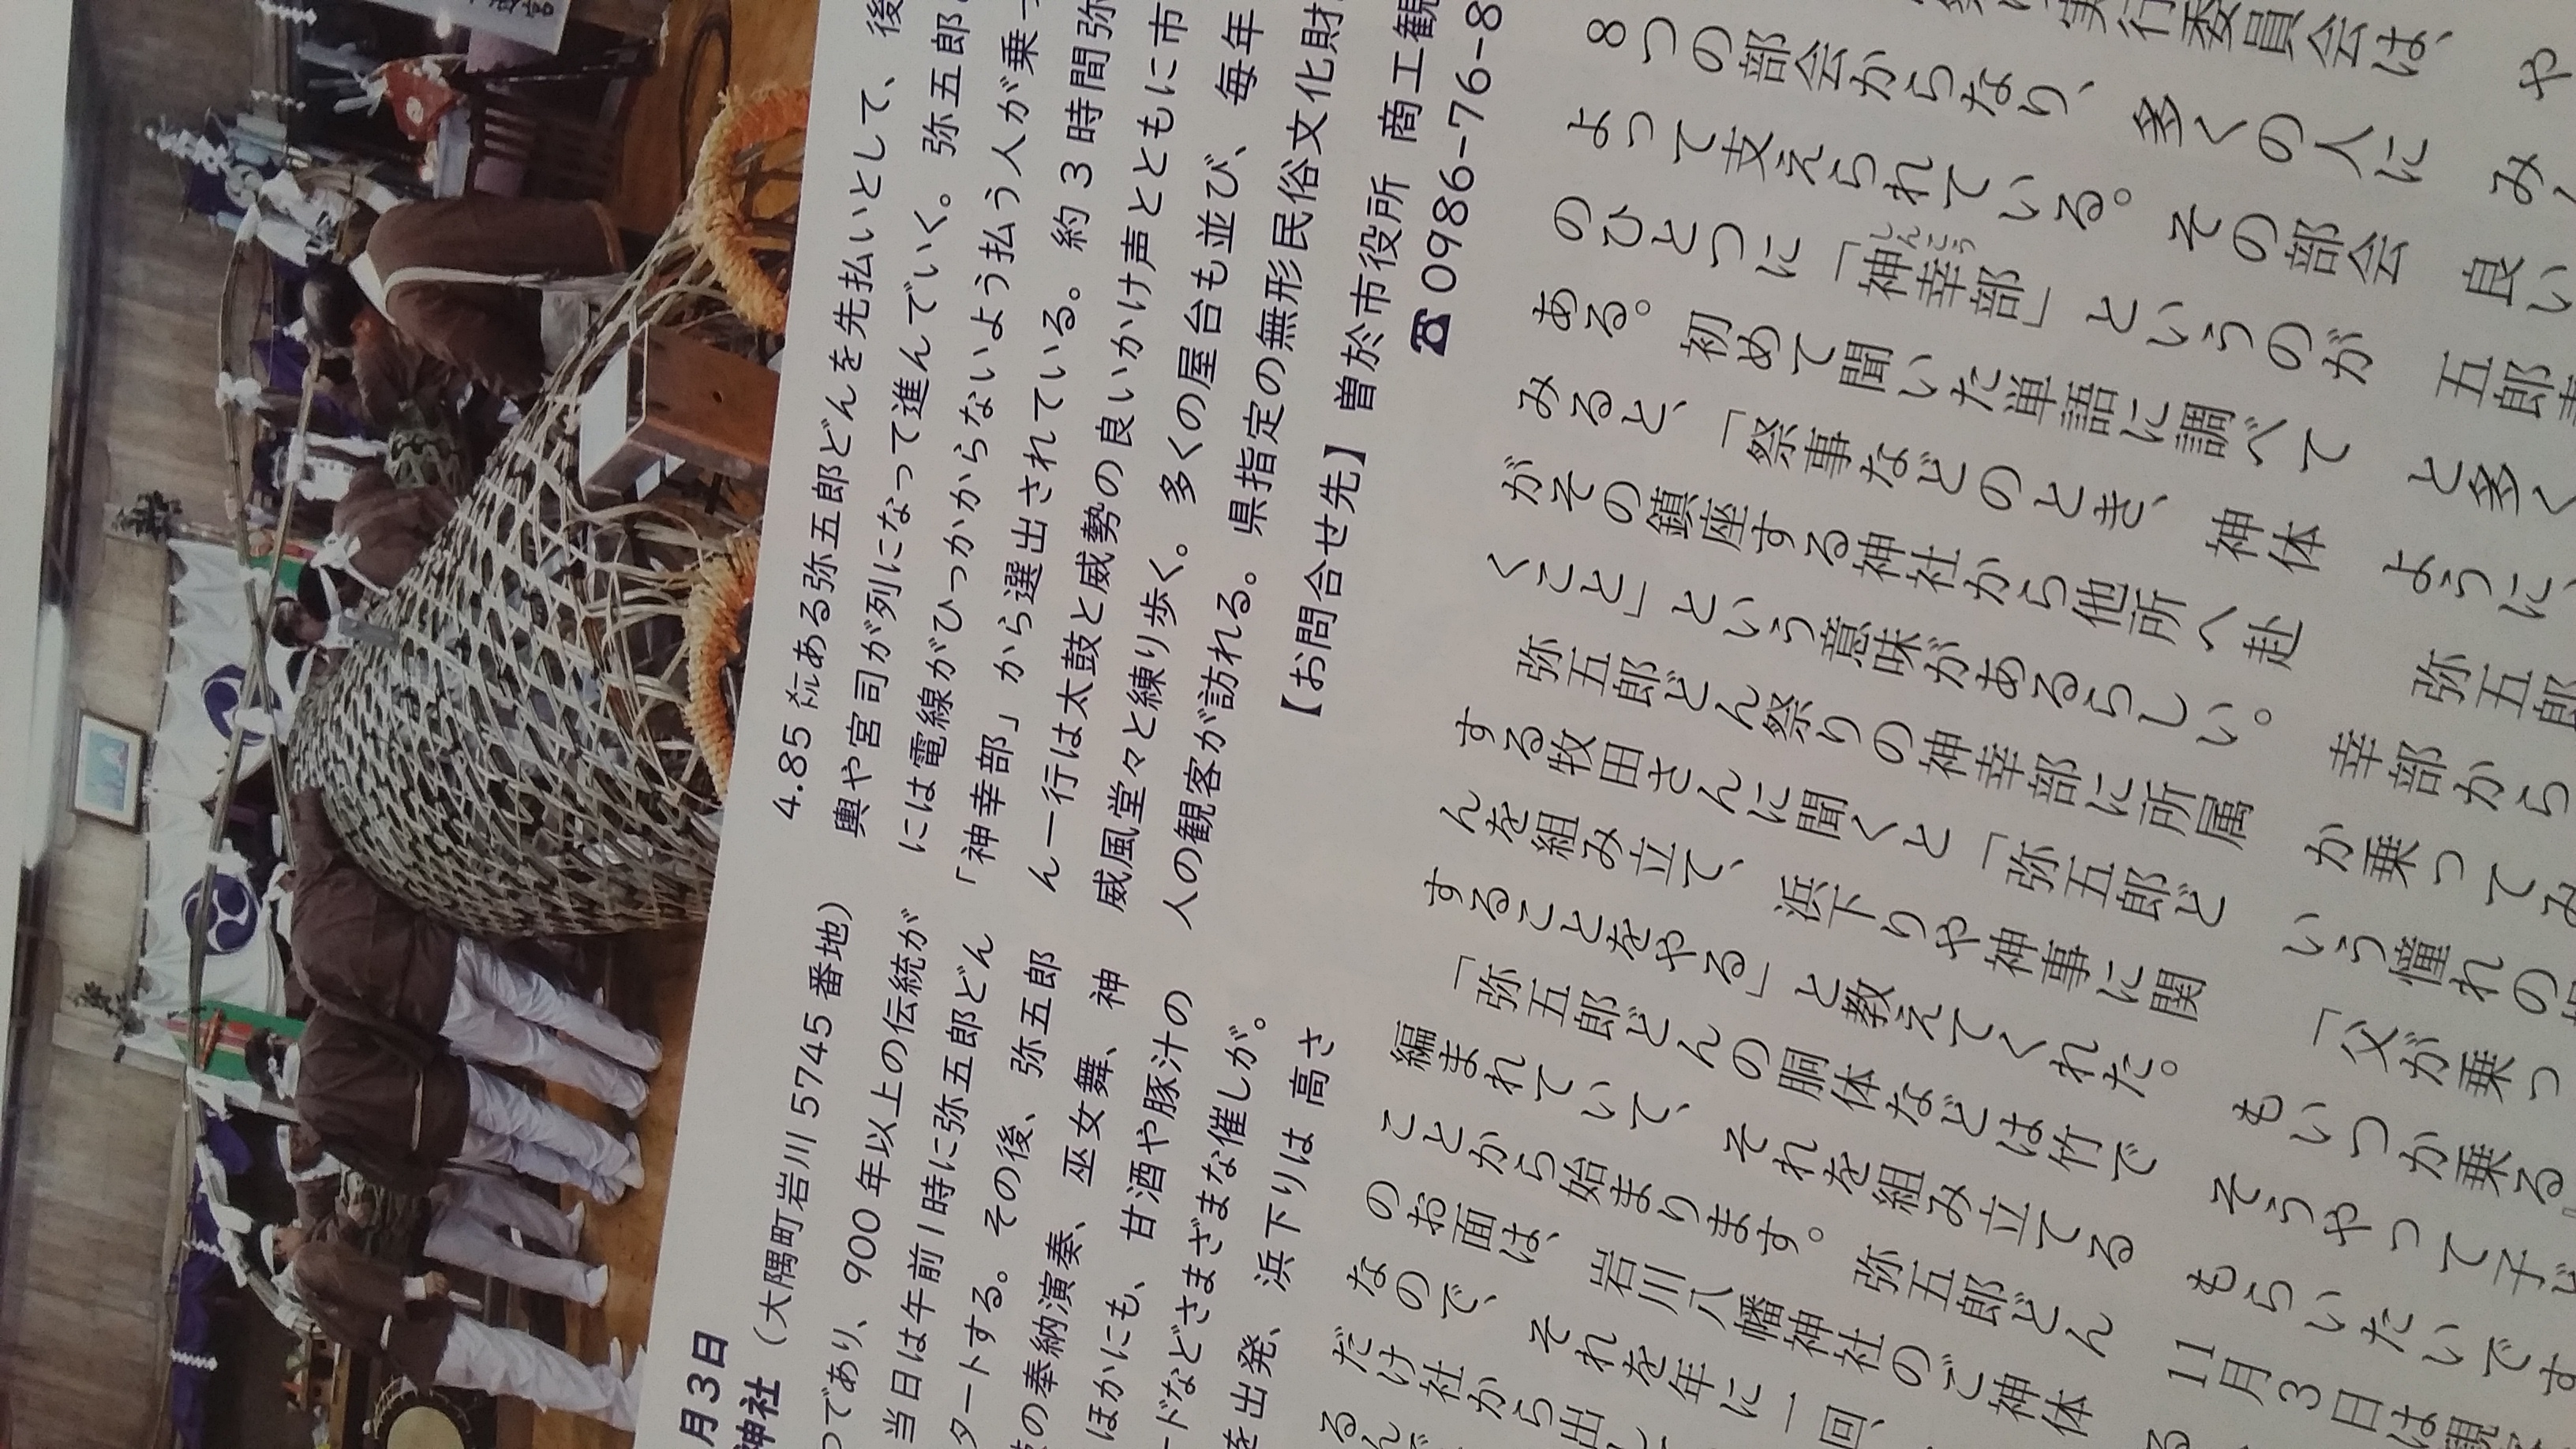 月3日
神社（大隅町岩川5745番地）
つであり、900年以上の伝統が
当日は午前1時に弥五郎どん
タートする。その後、弥五郎
の奉納演奏、巫女舞、神
ほかにも、甘酒や豚汁の
ードなどさまざまな催しが。
を出発、浜下りは 高さ
4.85㍍ある弥五郎どんを先払いとして、後
輿や宮司が列になって進んでいく。弥五郎
には電線がひっかからないよう払う人が乗っ
「神幸部」から選出されている。約3時間弥
ん一行は太鼓と威勢の良いかけ声とともに市
威風堂々と練り歩く。多くの屋台も並び、毎年
人の観客が訪れる。県指定の無形民俗文化財
【お問合せ先】曽於市役所 商工観
☎0986-76-8
実行委員会は、
8つの部会からなり、多くの人に
よって支えられている。その部会
のひとつに「神幸部」というのが
しんこう
ある。初めて聞いた単語に調べて
みると、「祭事などのとき、神体
がその鎮座する神社から他所へ赴
くこと」という意味があるらしい。
弥五郎どん祭りの神幸部に所属
する牧田さんに聞くと「弥五郎ど
んを組み立て、浜下りや神事に関
することをやる」と教えてくれた。
「弥五郎どんの胴体などは竹で
編まれていて、それを組み立てる
ことから始まります。弥五郎どん
のお面は、岩川八幡神社のご神体
なので、それを年に一回、
だけ社から出
るんで
や
み
良い
五郎
と多く
ように、
弥五郎
幸部から
か乗ってみ
いう憧れの
「父が乗っ
もいつか乗る
そうやって子ど
もらいたいです
11月3日は観
る